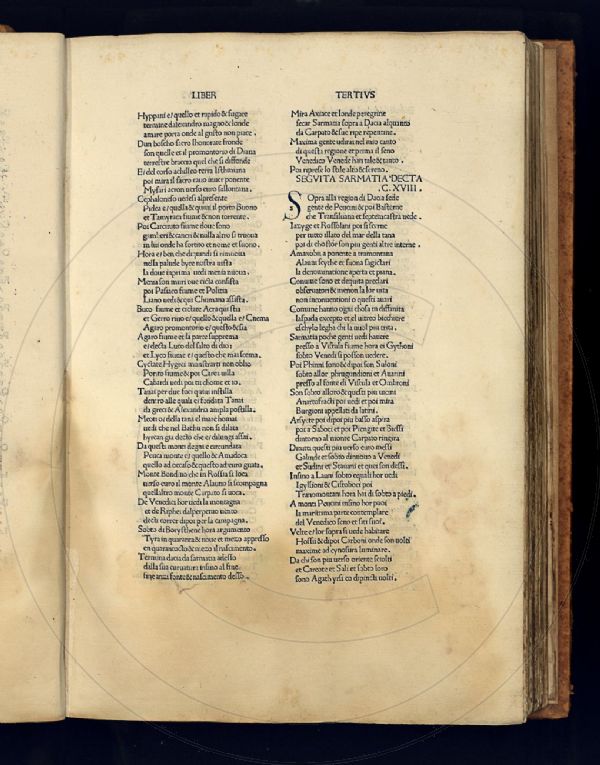 LIBER
TERTIVS
Hyppani e/ quello et rapido & fugace
termine dalexandro magno & londe
amare porta onde al gusto non piace
Dun boscho sacro lhonorate fronde
son quelle et il promontorio di Diana
terrestre bruono quel che si diffende
Et del corso achilleo terra Isthmiana
poi mira il sacro ratio inace ponente
Mysari acron uerso euro sallontana.
Cephaloneso uerdesi alpresente
Pidea e/ quella & quini il porto Buono
et Tanyraca fiume & non torrente.
Poi Carcinito fiume doue sono
gimberi & canci & nulla altro si truoua
in lui onde ha sortito et nome et suono.
Hora e/ ben che di qundi si rimuoua
nella palude byce nostra uista
la doue ispirma uedi menia nuoua.
Menia son muri oue ricia consista
poi Pasiaco fiume et Politia
Liano uedi & qui Chumano assista.
Buco fiume et ciclare Acraquistia
et Gerro rino e/ quello & quella e/ Cnema
Agaro promontorio e/ questo & sia
Agaro fiume et la parte suprema
e/ decta Luco del salto di dio:
et Lyco fiume e/ questo che mai scema.
Cyclare Hygrei mnastrarti non oblio
Porito fiume & poi Carei uilla
Cabardi uedi poi tu chome et io.
Tanai per due foci quini instilla
dentro alle quali e/ fondata Tanai
da greci & Alexandria ampla postilla.
Meote o/ della tana el mare homai
uedi che nel Bathu non si dilata
hyrcan gia decto che e/ dilungi assai.
Da questi monti degni e circundata
Peuca monte e/ quello & Amadoca
quello ad occaso & questo adeuro guata.
Monte Bondino che in Rossia si loca
uerso euro il monte Alauno si scompagna
quellaltro monte Carpato si uoca.
De Venedici hor uedi la montagna
et de Riphei dalperpetuo uento
decti correr dipoi per la campagna.
Sobto di Borysthene hora argumento
Tyra in quaranta & noue et mezo appresso
en quarantocto & mezo al nascimento.
Termina dacia da sarmatia adesso
dalla sua curuatura insino al fine
sine anni fonte & nascimento desso.
Mira Axiace et londe peregrine
secar Sarmatia sopra a Dacia alquanto
da Carpato & sue ripe repentane.
Maxima gente udirai nel mio canto
di questa regione et prima il seno
Venedico Venede han tale & tanto.
Poi riprese lo stile alto & sereno.
SEGVITA SARMATIA DECTA
C. XVIII.
SOpra alla region di Dacia sede
gente de Peucini & poi Basterne
che Transiluana et septecastra uede.
Iazyge et Rossolani poi si scerne
per tutto allato del mar della tana
poi di chostor son piu genti altre interne.
Amaxobii a ponente a tramontana
Alauni scythe et fuona sagictari
la denominatione aperta et piana.
Comune sono et dequita preclari
obseruatori & menon la lor uita
non inconuentioni o questi auari
Comune hanno ogni chosa in diffinita
laspada excepto et el uitreo bicchiere
eschylo legha chi la uuol piu trita.
Sarmatia poche genti uedi hauere
presso a Vistula fiume hora et Gythoni
sobto Venedi si posson uedere.
Poi Phinni sono & dipoi son Suloni
sobto alloe phrugundioni et Auarini
presso al fonte di Vistula et Ombroni
Son sobto alloro & questi piu uicini
Anartofracti poi uedi et poi mira
Burgioni appellati da latini.
Arsyete poi dipoi piu basso aspira
poi a Saboci et poi Piengite et Biessi
dintorno al monte Carpato ringira
Da tutti questi piu uerso euro messi
Galinde et sobto dintorno a Venedi
et Sudini et Stauani et quei son dessi.
Insino a Launi sobto equali hor uedi
Igyllioni & Cistoboci poi
Transmontani hora hai di sobto a piedi.
A monti Peucini insino hor puoi
la maritima parte contemplare
del Venedico seno et liti suoi.
Velte e/ lor sopra si uede habitare
Hossii & dipoi Carboni onde son uolti
maxime ad cynosura luminare.
Da chi son piu uerso oriente sciolti
et Careote et Sali et sobto loro
sono Agathyrsi co dipincti uolti.